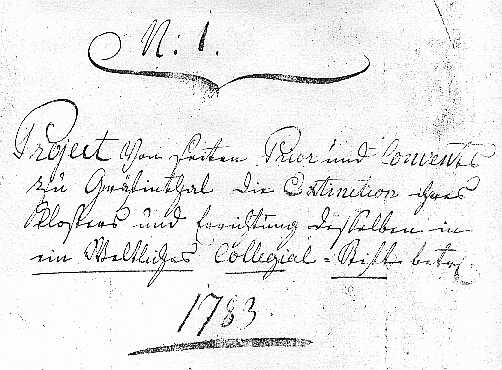 N: 1.
Project Von seiten Prior und Convents
zu Gräfinthal die Extinction ihres
Klosters und Errichtung desselben in
ein Weltliches Collegial-Stift betr.
1783.